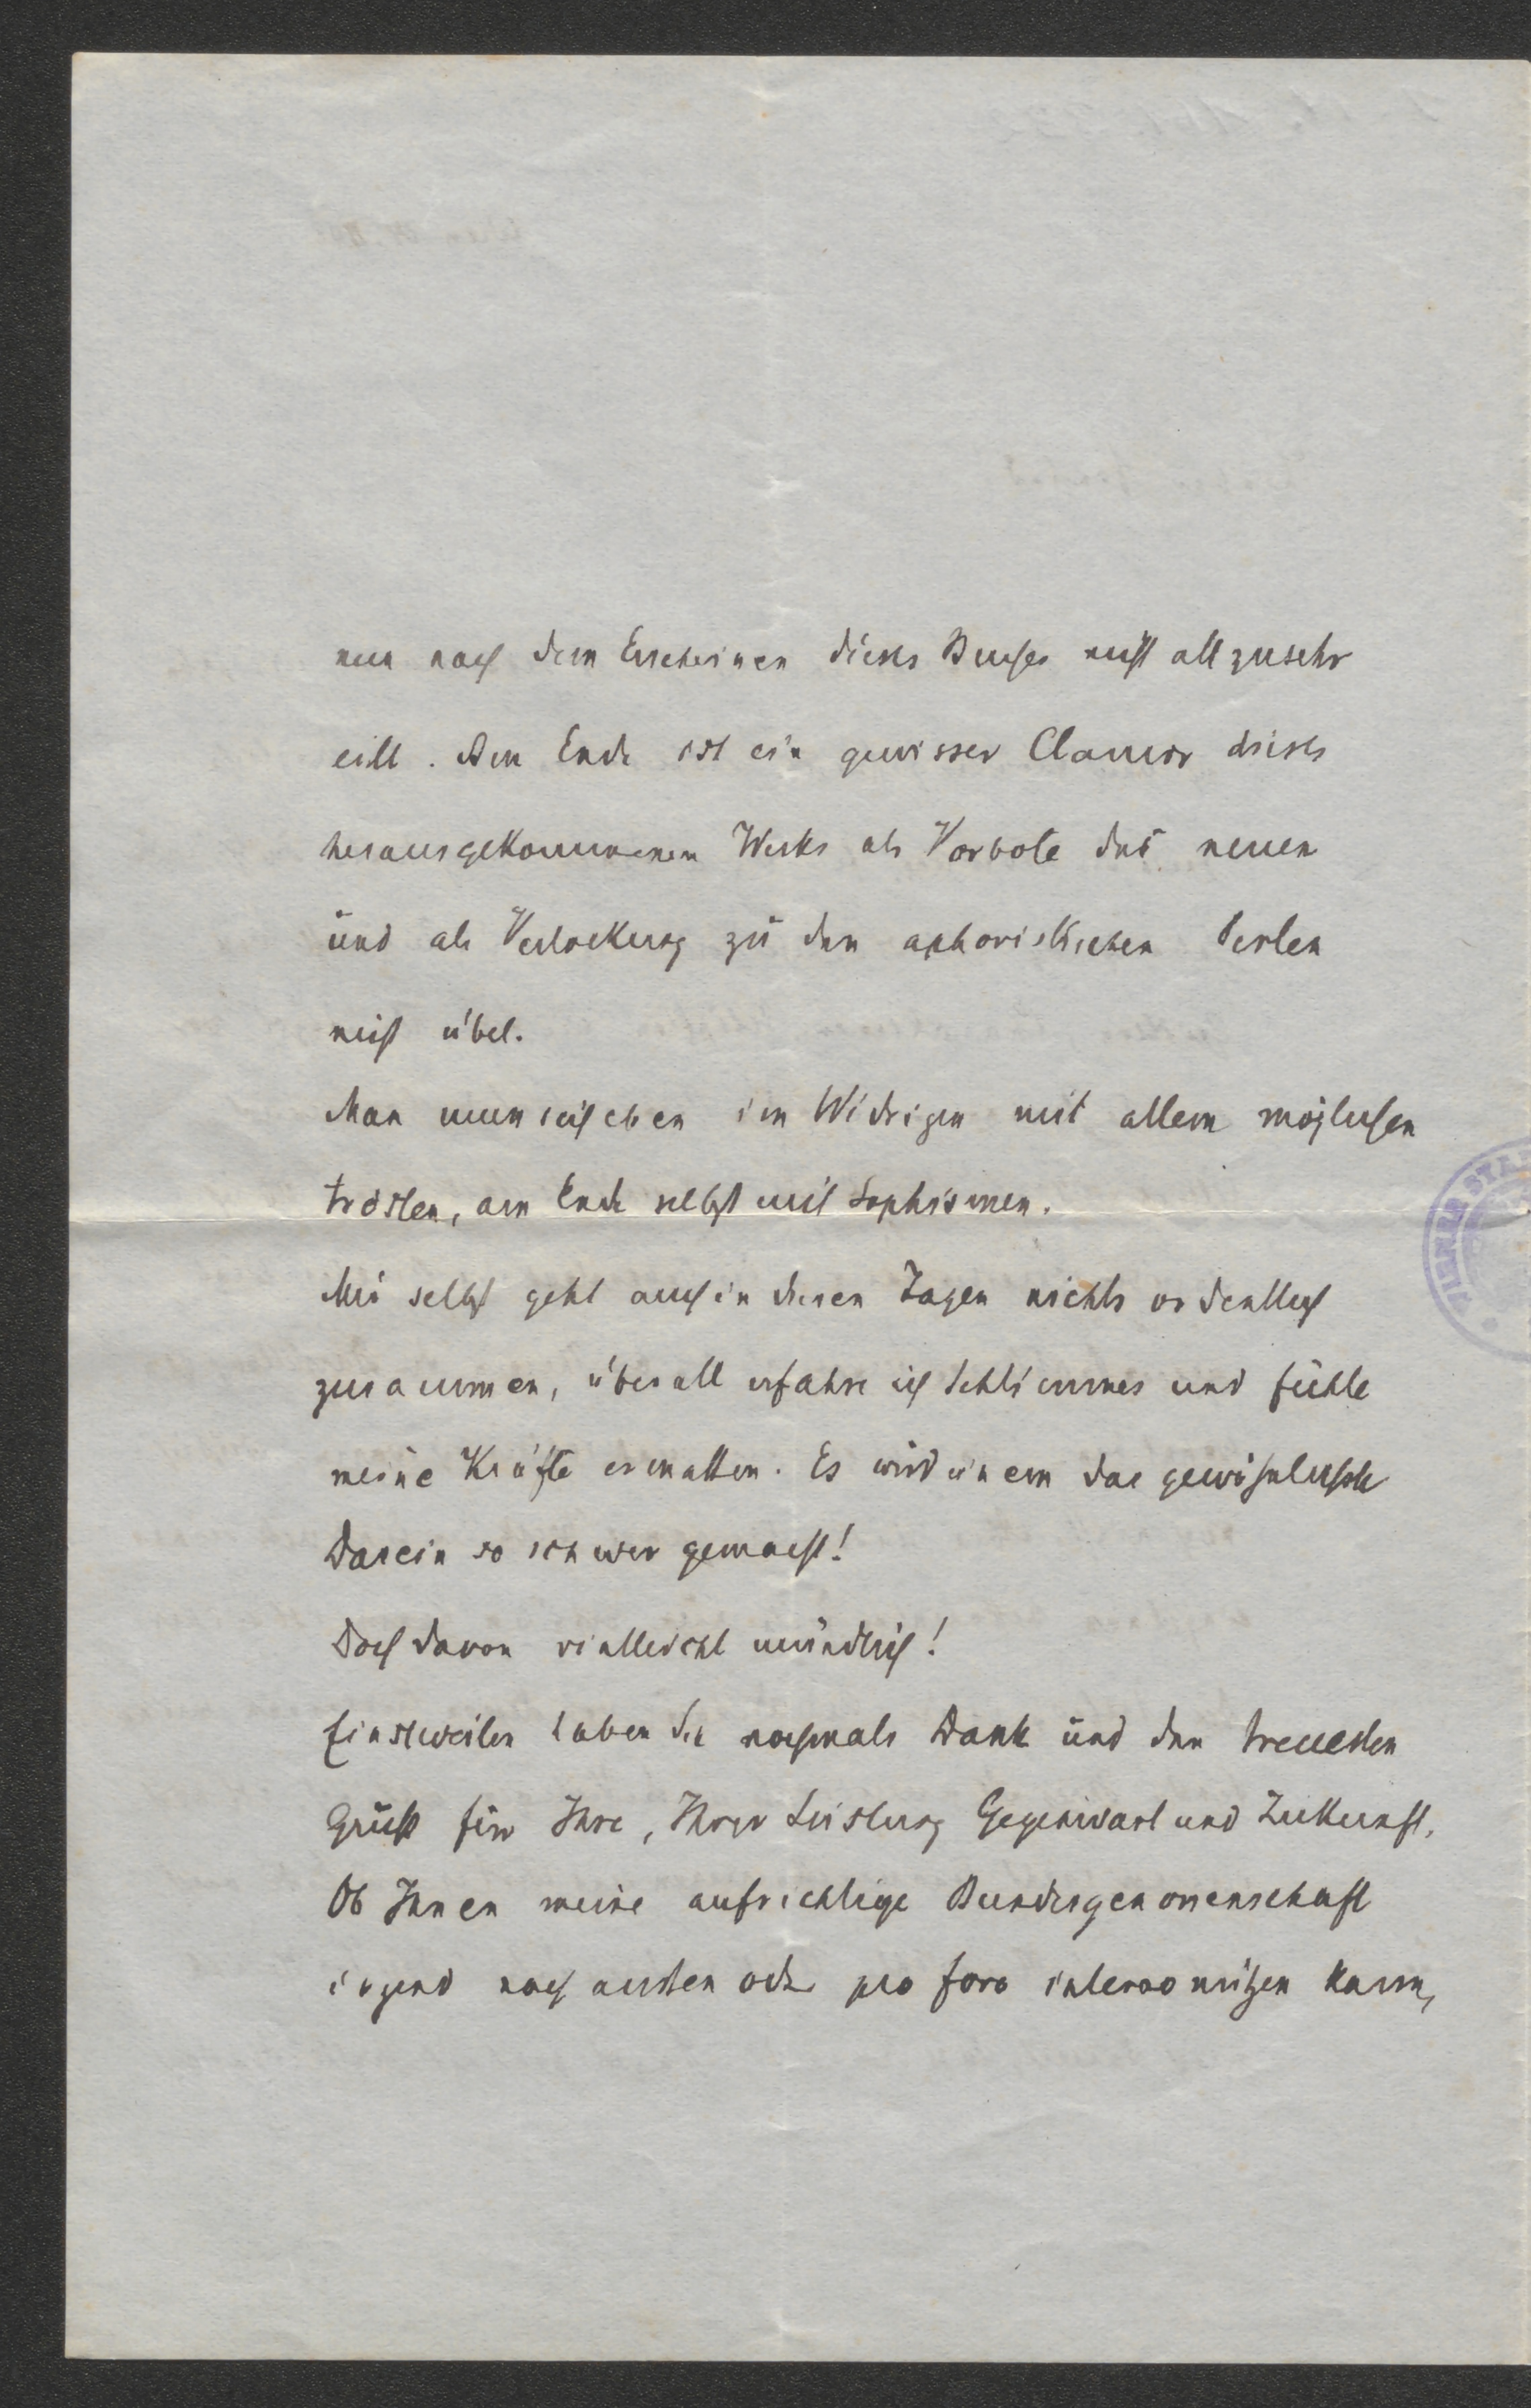 nun nach dem Erscheinen dieses Buches nicht allzusehr
eilt. Am Ende ist ein gewisser Clamor dieses
herausgekommenen Werks als Vorbote des neuen
und als Verlockung zu den aphoristischen Perlen
nicht übel.
Man muss sich eben im Widrigen mit allem möglichen
trösten, am Ende selbst mit Sophismen.
Mir selbst geht auch in diesen Tagen nichts ordentlich
zusammen, überall erfahre ich Schlimmes und fühle
meine Kräfte ermatten. Es wird einem das gewöhnlichste
Dasein so schwer gemacht!
Doch davon vielleicht mündlich!
Einstweilen haben Sie nochmals Dank und den treuesten
Gruß für Ihre, Ihrer Leistung Gegenwart und Zukunft.
Ob Ihnen meine aufrichtige Bundesgenossenschaft
irgend nach außen oder pro foro interno nützen kann,
WIENER STA